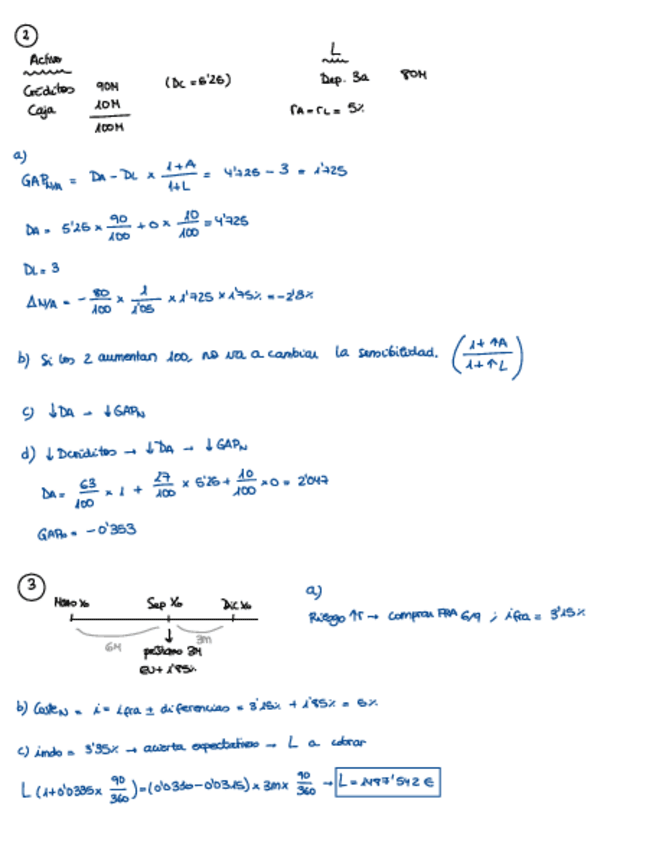 2
Activo
L
Créditos 90M (Dc = 5'25)
Dep. 3a 80M
Caja 10M
rA = rL = 5%
100M
a)
GAP = DA - DL × (1+A)/(1+L) = 4'725 - 3 = 1'725
DA = 5'25 × 90/100 + 0 × 10/100 = 4'725
DL = 3
ΔN/A = - 80/100 × 1/1'05 × 1'725 × 1'75% = -2'3%
b) Si los 2 aumentan 100, no va a cambiar la sensibilidad. ((1+↑A)/(1+↑L))
c) ↓DA → ↓GAPN
d) ↓Dcréditos → ↓DA → ↓GAPN
DA = 63/100 × 1 + 27/100 × 5'25 + 10/100 × 0 = 2'047
GAPN = -0'353
3
Marzo X0 Sep X0 Dic X0
6M 3M
préstamo 3M
EU + 1'85%
a)
Riesgo ↑r → comprar FRA 6/9 ; ifra = 3'15%
b) CosteN = i = ifra ± diferencias = 3'15% + 1'85% = 5%
c) indo = 3'35% → acierta expectativas → L a cobrar
L (1+0'0335× 90/360) = (0'0335-0'0315) × 3m × 90/360 → L = 1487'542 €